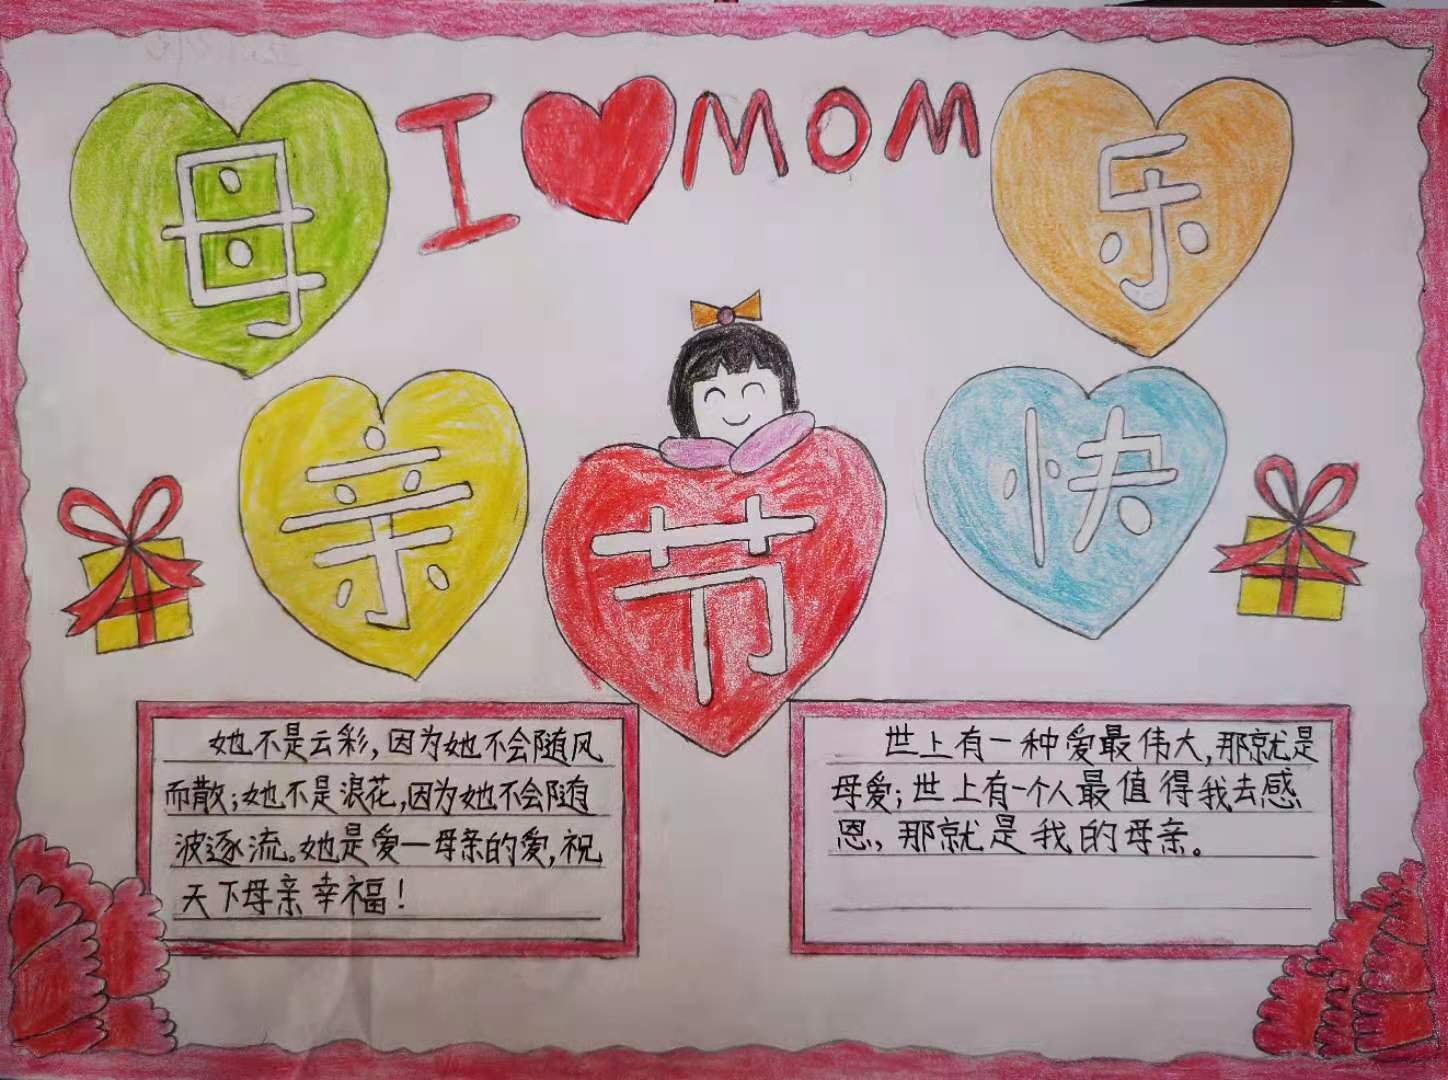 I ❤ MOM
母亲节快乐
她不是云彩,因为她不会随风
而散;她不是浪花,因为她不会随
波逐流。她是爱一母亲的爱,祝
天下母亲幸福!
世上有一种爱最伟大,那就是
母爱;世上有一个人最值得我去感
恩,那就是我的母亲。